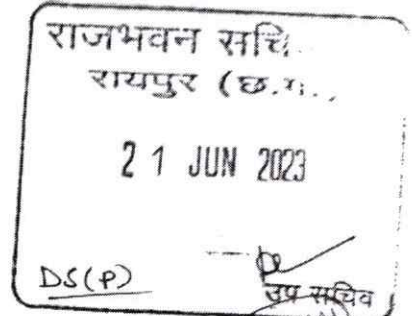 राजभवन सचि
रायपुर (छ.ग.,
21 JUN 2023
DS(P)
उप सचिव